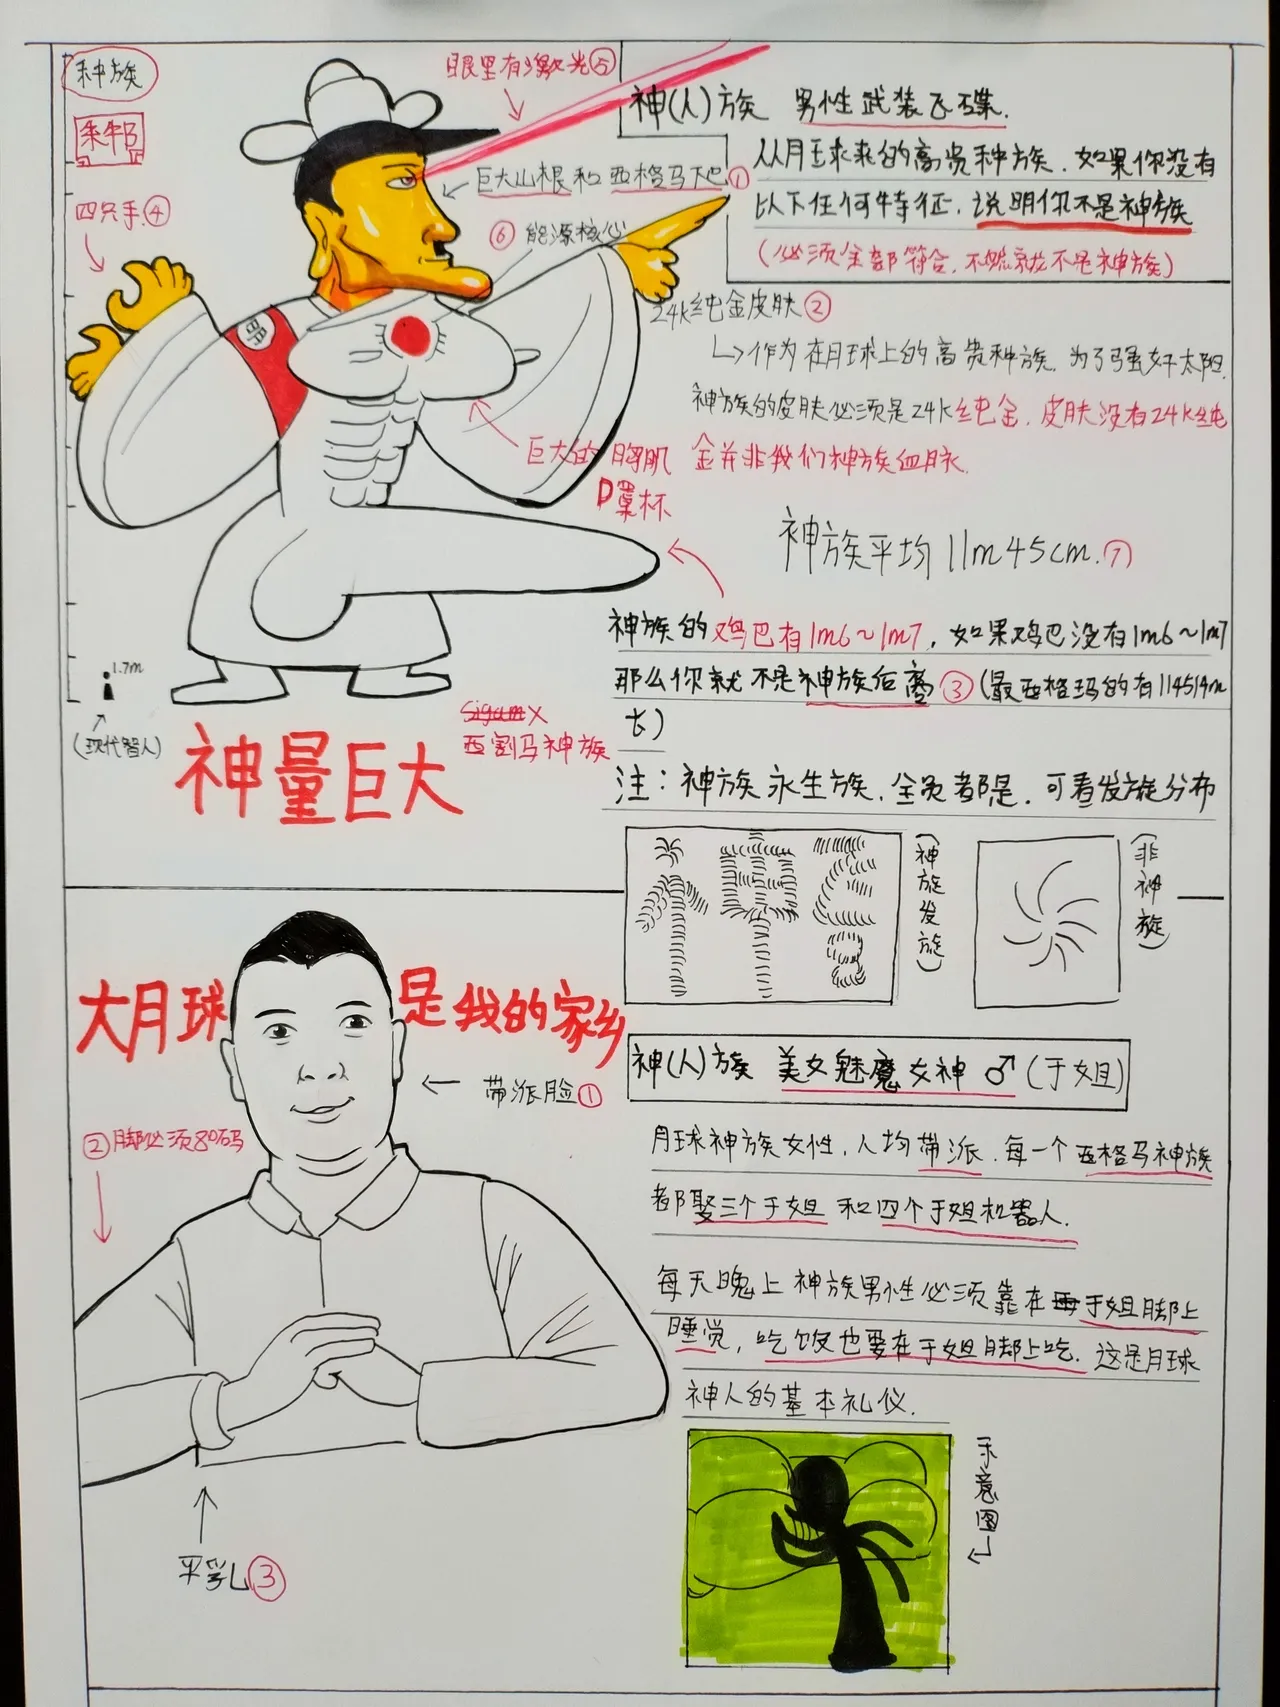 种族
眼里有激光⑤
神(人)族 男性武装飞碟.
从月球来的高贵种族.如果你没有
以下任何特征,说明你不是神族
(必须全部符合,不然就不是神族)
巨大山根和西格马下巴①
四只手④
⑥能源核心
24k纯金皮肤②
作为在月球上的高贵种族.为了强奸太阳.
神族的皮肤必须是24k纯金,皮肤没有24k纯
金并非我们神族血脉.
巨大的胸肌
D罩杯
神族平均11m45cm.⑦
神族的鸡巴有1m6~1m7,如果鸡巴没有1m6~1m7
那么你就不是神族后裔③(最西格玛的有114514m
长)
1.7m
(现代智人)
神量巨大
西割马神族
注:神族永生族,全员都是,可看发旋分布
(神族发旋)
(非神旋)
大月球是我的家乡
带派脸①
②脚必须80码
平乳③
神(人)族 美女魅魔女神♂(于姐)
月球神族女性,人均带派.每一个西格马神族
都娶三个于姐和四个于姐机器人.
每天晚上神族男性必须靠在于姐脚上
睡觉,吃饭也要在于姐脚上吃.这是月球
神人的基本礼仪.
示意图